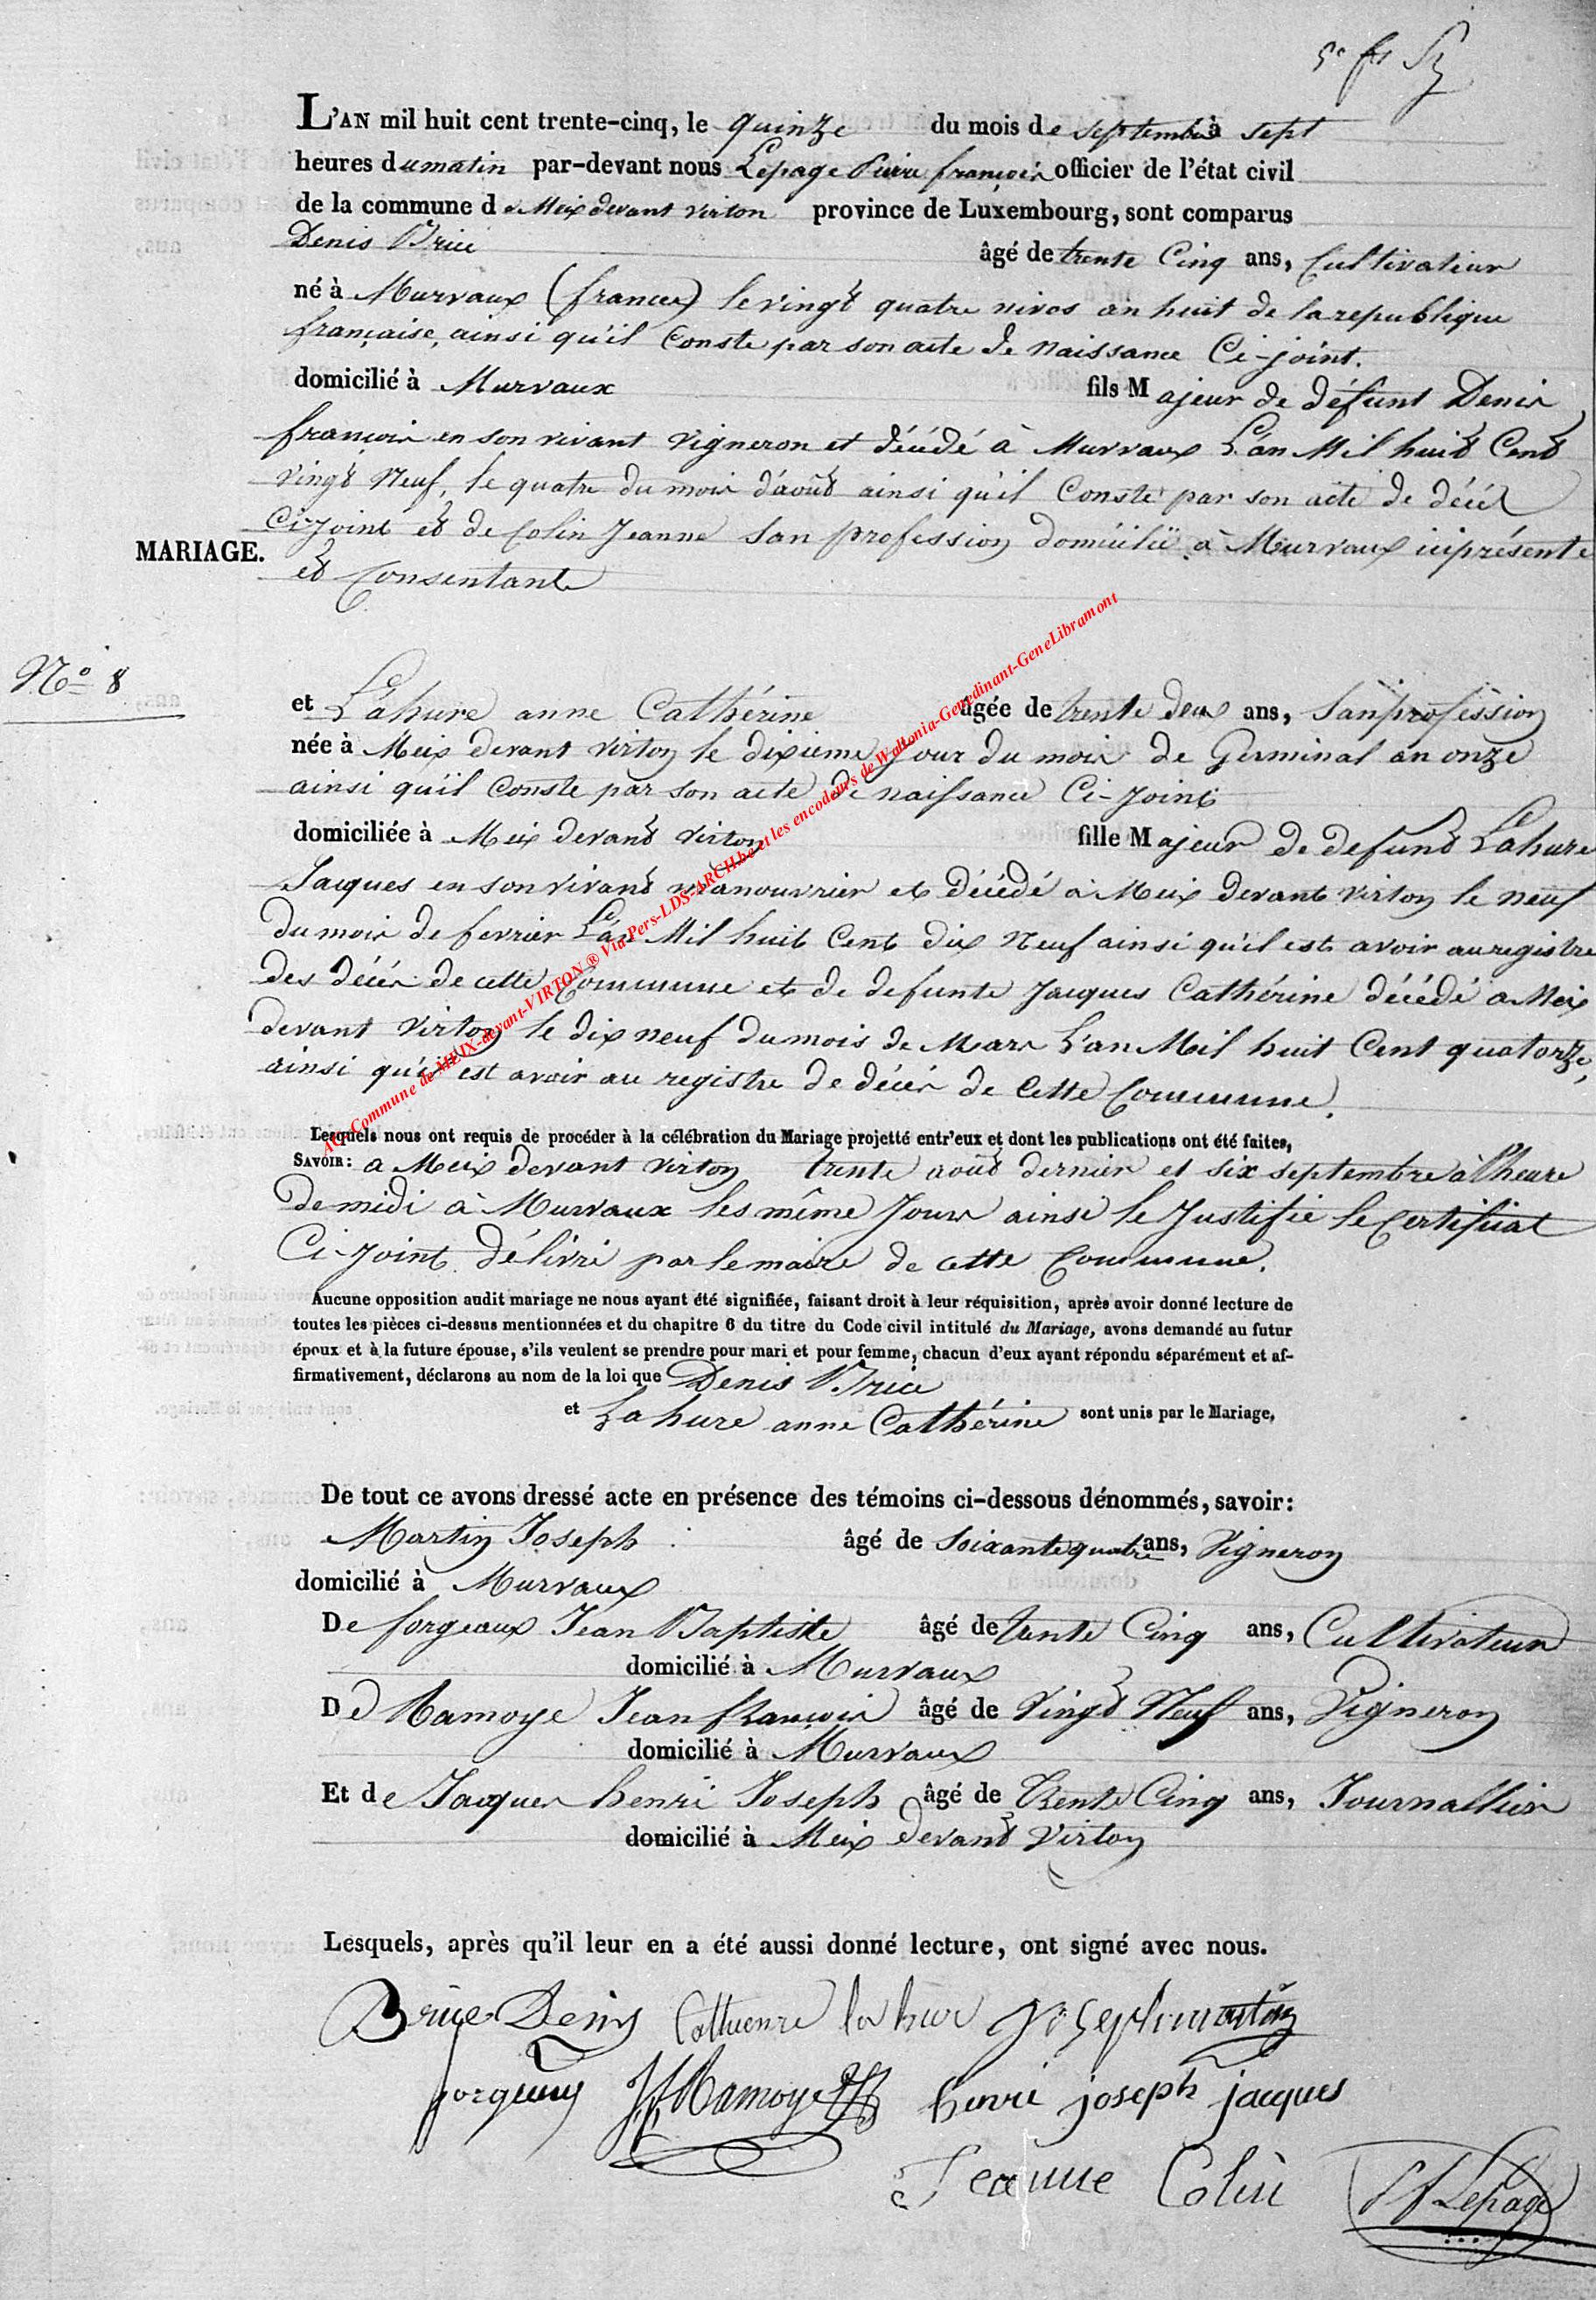 5e fs
L'AN mil huit cent trente-cinq, le quinze du mois de septembre à sept
heures du matin par-devant nous Lepage Pierre françois officier de l'état civil
de la commune de Meix devant virton province de Luxembourg, sont comparus
Denis Brice âgé de trente Cinq ans, Cultivateur
né à Murvaux (france) le vingt quatre nivos an huit de la republique
française, ainsi qu'il Conste par son acte de Naissance Ci-joint.
domicilié à Murvaux fils Majeur de défunt Denis
françois en son vivant vigneron et décédé à Murvaux L'an Mil huit Cent
vingt Neuf, le quatre du mois d'août ainsi qu'il Conste par son acte de décès
Ci-joint et de Colin Jeanne San profession domicilié à Murvaux ici présente
et Consentante
MARIAGE.
No 8
et Lahure anne Cathérine âgée de trente deux ans, San profession
née à Meix devant virton le dixieme jour du mois de Germinal an onze
ainsi qu'il Conste par son acte de naissance Ci-joint
domiciliée à Meix devant virton fille Majeur de defunt Lahure
Jacques en son vivant manouvrier et décédé à Meix devant virton le neuf
du mois de fevrier L'an Mil huit Cent dix Neuf ainsi qu'il est avoir au registre
des décès de cette Commune et de defunte Jacques Cathérine décédé a Meix
devant Virton le dix neuf du mois de Mars L'an Mil huit Cent quatorze,
ainsi qu'il est avoir au registre de décès de Cette Commune.
AC-Commune de MEIX-devant-VIRTON ® Via Pers-LDS-ARCH.be et les encodeurs de Waltonia-Genedinant-GeneLibramont
Lesquels nous ont requis de procéder à la célébration du Mariage projetté entr'eux et dont les publications ont été faites,
SAVOIR: a Meix devant virton trente août dernier et six septembre à l'heure
de midi à Murvaux les même Jours ainsi le Justifie le Certifiat
Ci-joint délivré par le maire de cette Commune.
Aucune opposition audit mariage ne nous ayant été signifiée, faisant droit à leur réquisition, après avoir donné lecture de
toutes les pièces ci-dessus mentionnées et du chapitre 6 du titre du Code civil intitulé du Mariage, avons demandé au futur
époux et à la future épouse, s'ils veulent se prendre pour mari et pour femme, chacun d'eux ayant répondu séparément et af-
firmativement, déclarons au nom de la loi que Denis Brice
et Lahure anne Cathérine sont unis par le Mariage.
De tout ce avons dressé acte en présence des témoins ci-dessous dénommés, savoir:
Martin Joseph âgé de Soixante quatre ans, Vigneron
domicilié à Murvaux
De forgeaux Jean Baptiste âgé de trente Cinq ans, Cultivateur
domicilié à Murvaux
De Ramoye Jean francois âgé de Vingt Neuf ans, Vigneron
domicilié à Murvaux
Et de Jacques henri Joseph âgé de Trente Cinq ans, Journallier
domicilié à Meix devant Virton
Lesquels, après qu'il leur en a été aussi donné lecture, ont signé avec nous.
Brice Denis Catherine la hure Joseph martin
forgeaux JF Ramoye henri joseph jacques
Jeanne Colin PF Lepage